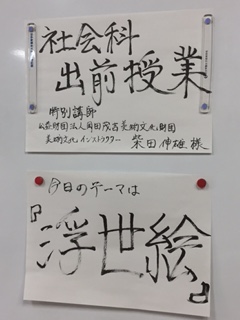 社会科
出前授業
特別講師
公益財団法人岡田茂吉美術文化財団
美術文化インストラクター 柴田伸雄様
今日のテーマは
『浮世絵』